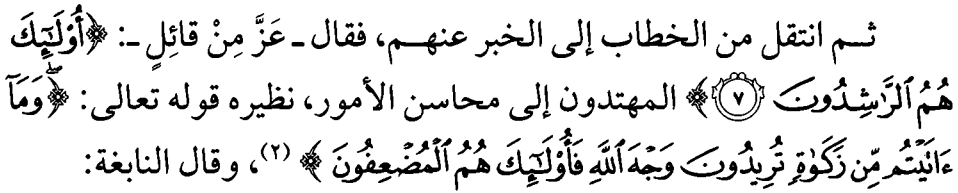 ثم انتقل من الخطاب إلى الخبر عنهم، فقال ـ عَزَّ مِنْ قائِلٍ ـ: ﴿أُوْلَٰٓئِكَ
هُمُ ٱلرَّٰشِدُونَ ۝٧﴾ المهتدون إلى محاسن الأمور، نظيره قوله تعالى: ﴿وَمَآ
ءَاتَيْتُم مِّن زَكَوٰةٍ تُرِيدُونَ وَجْهَ ٱللَّهِ فَأُوْلَٰٓئِكَ هُمُ ٱلْمُضْعِفُونَ﴾ (٢)، وقال النابغة: